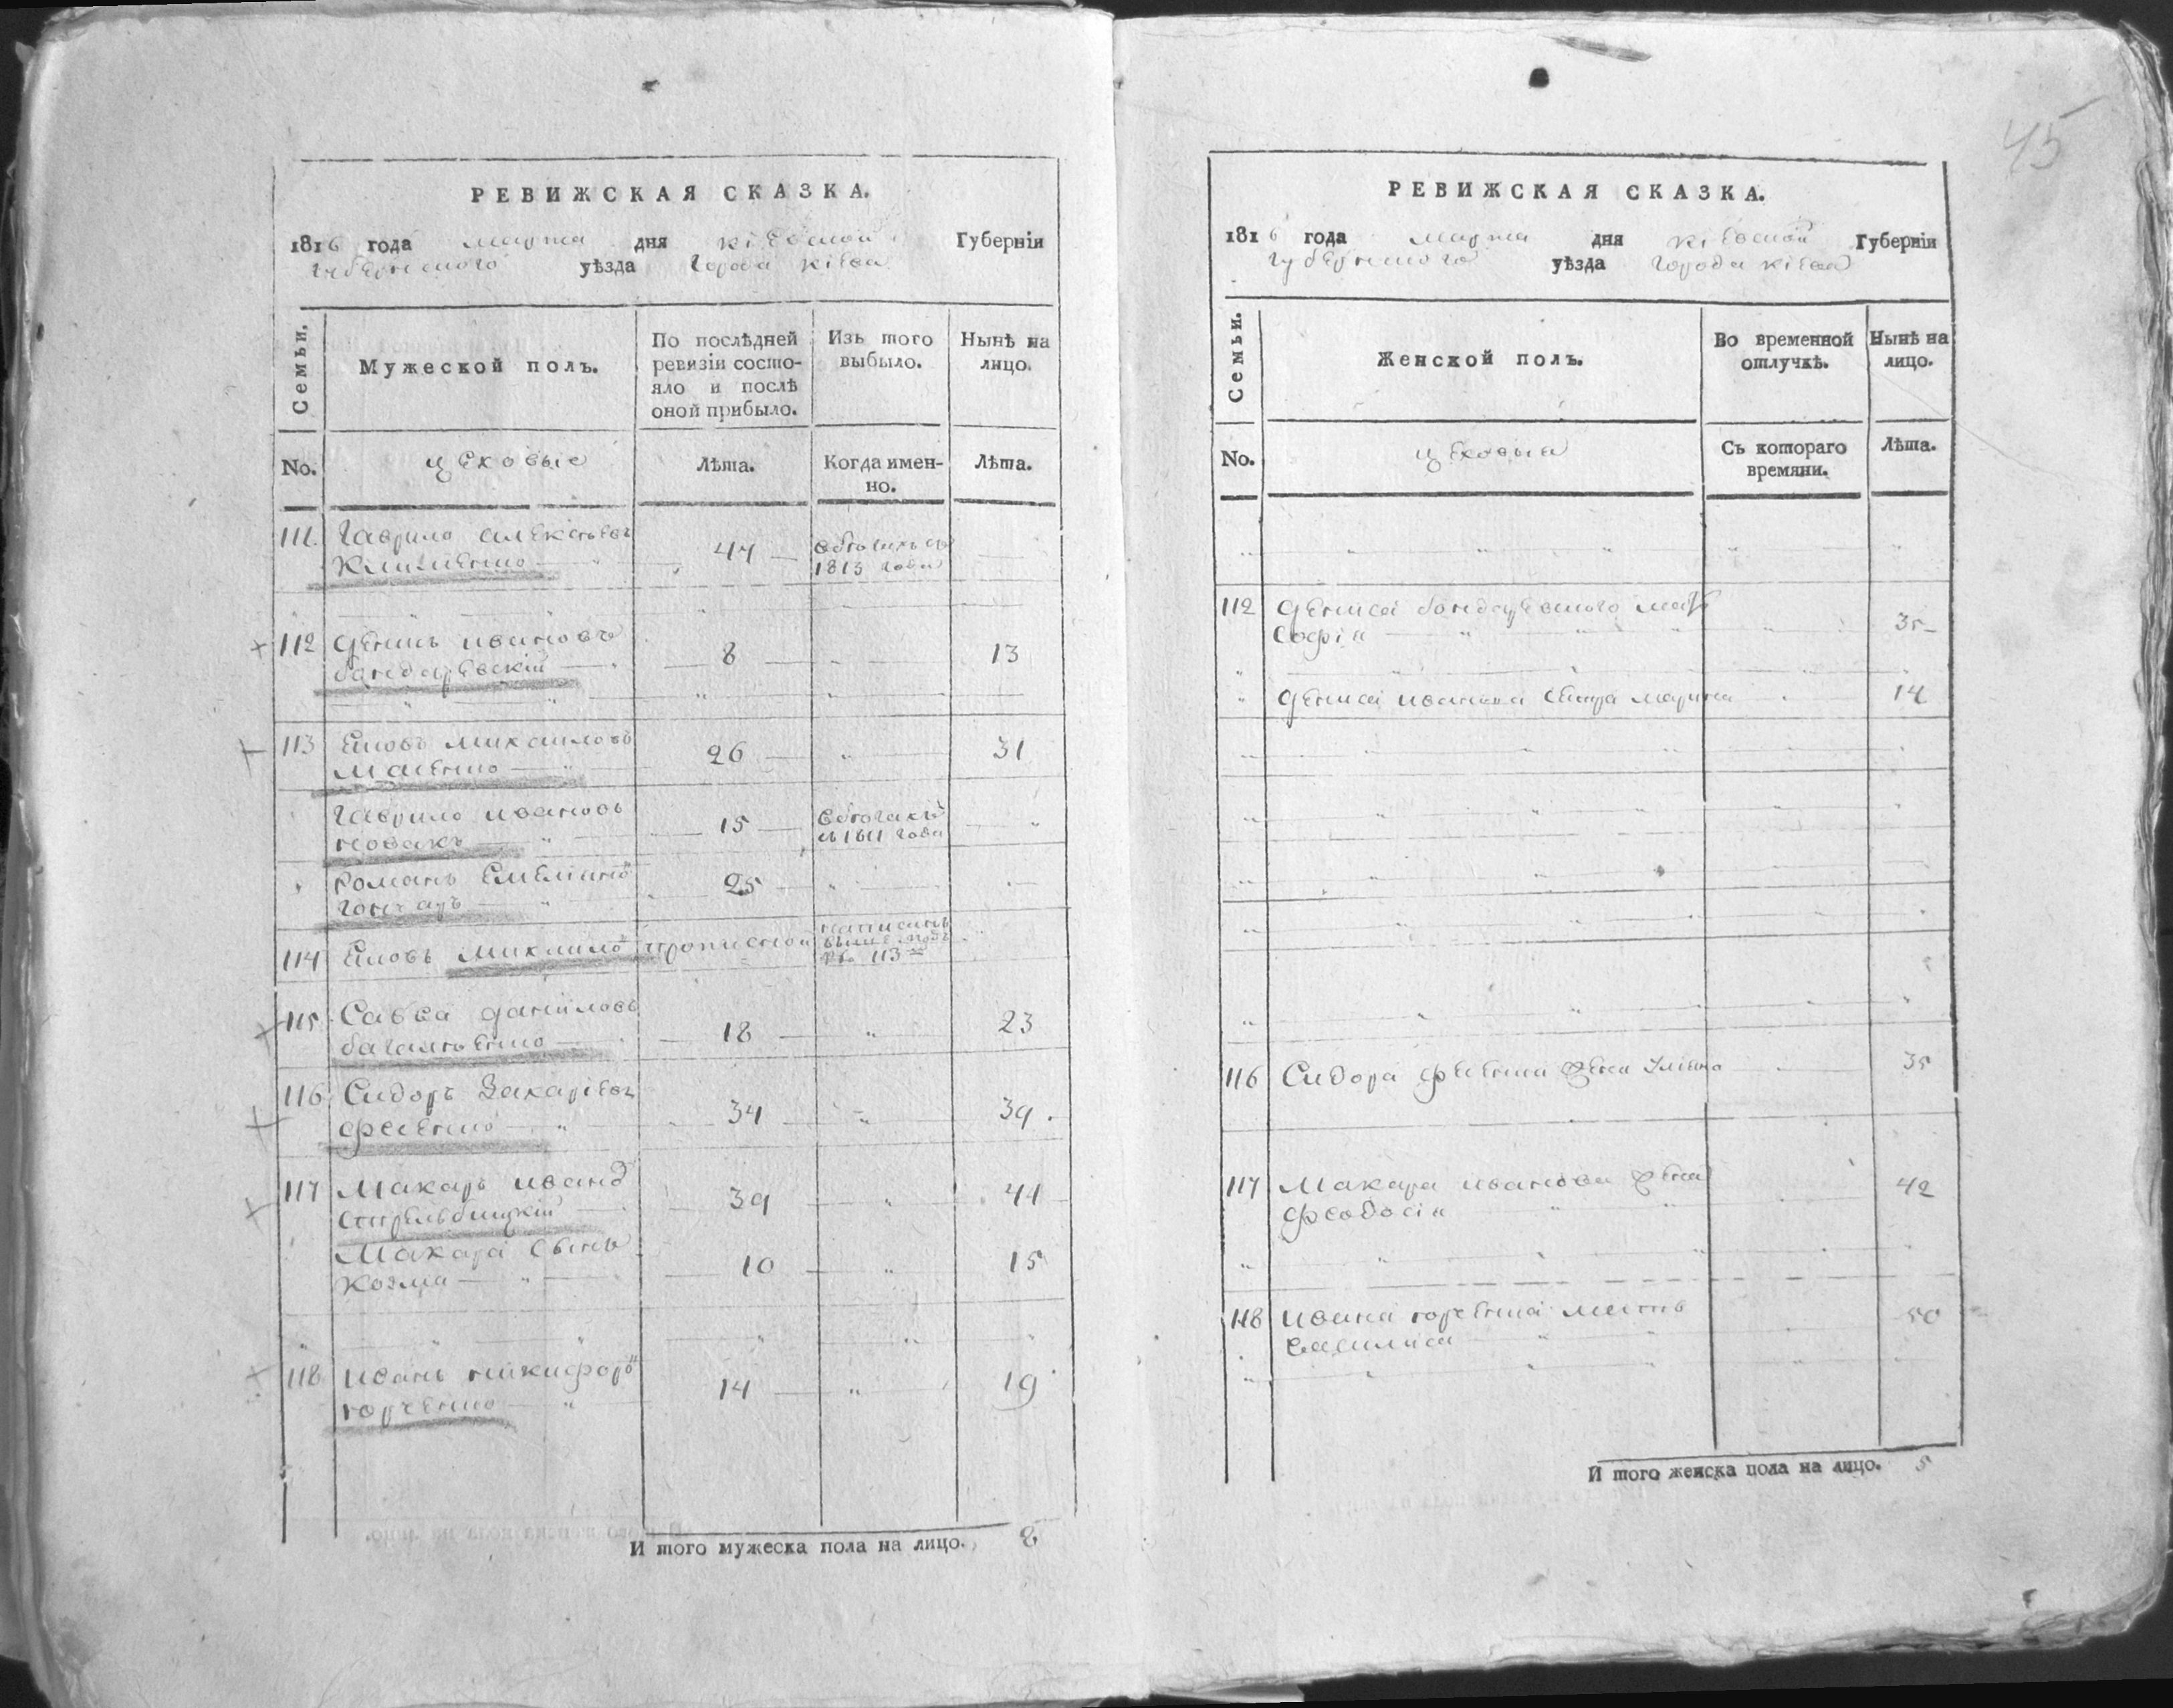 45
РЕВИЖСКАЯ СКАЗКА.
1816 года марта дня кіевской Губерніи
губернского уѣзда города кіева
Семьи.
Мужеской полъ.
По послѣдней
ревизіи состо-
яло и послѣ
оной прибыло.
Изъ того
выбыло.
Нынѣ на
лицо.
No.
цеховые
Лѣта.
Когда имен-
но.
Лѣта.
111. Гаврило алексѣевъ
Клименко 47
1813 года
112 Денисъ ивановъ
бондаревскій 8 13
113 Еловъ михаиловъ
26 31
Гаврило ивановъ
новакъ 15
съ 1811 года
Романъ
гончаръ 25
114 Еловъ михаило прописной написанъ
выше подъ
№ 113
115 Савва даниловъ
18 23
116 Сидоръ Захаріевъ
фесенко 34 39
117 Макаръ ивано
стрельбицкій 39 44
Макара сынъ
Козма 10 15
118 иванъ никифоро
горченко 14 19
И того мужеска пола на лицо. 8
РЕВИЖСКАЯ СКАЗКА.
1816 года марта дня кіевской Губерніи
губернского уѣзда города кіева
Семьи.
Женской полъ.
Во временной
отлучкѣ.
Нынѣ на
лицо.
No.
цеховыя
Съ котораго
времяни.
Лѣта.
112 Дениса бондаревского мать
Софія 35
Дениса иванова сестра марина 14
116 Сидора фесенка жена 35
117 Макара иванова жена
феодосія 42
118 ивана горченка мать
василиса 50
И того женска пола на лицо. 5